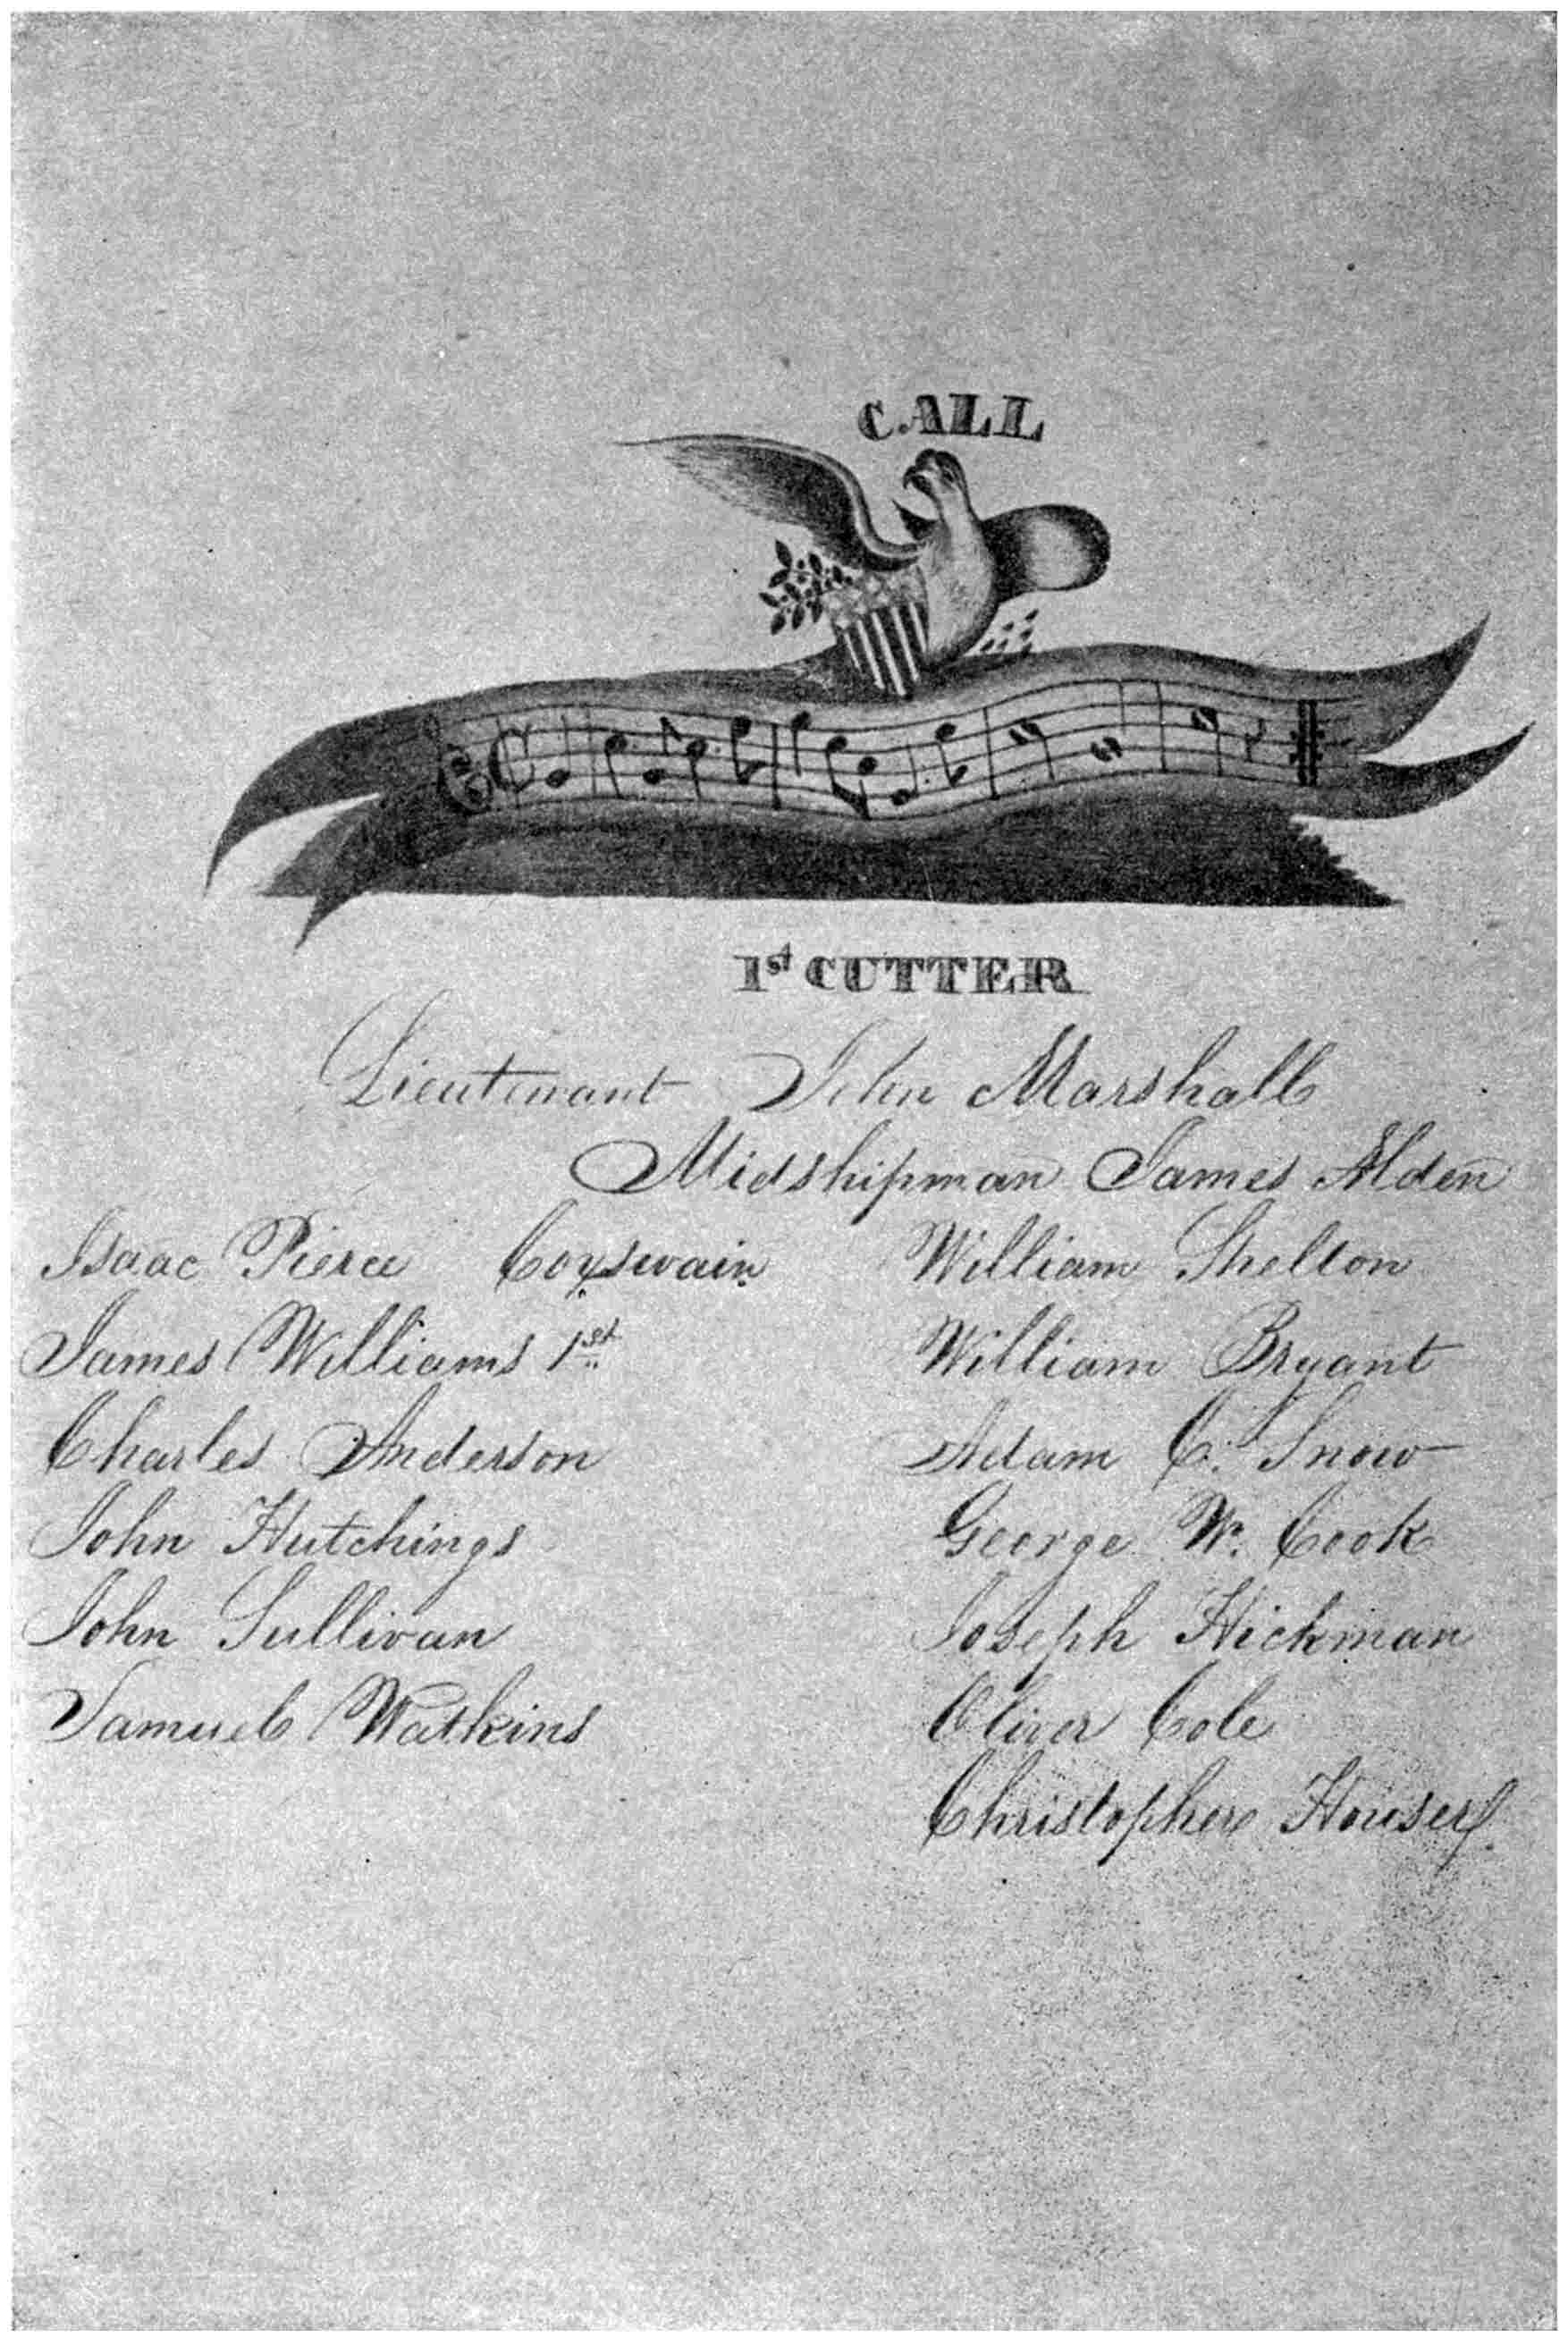 CALL
1st CUTTER
Lieutenant John Marshall
Midshipman James Alden
Isaac Pierce Coxswain William Shelton
James Williams 1st William Bryant
Charles Anderson Adam C. Snow
John Hutchings George W. Cook
John Sullivan Joseph Hickman
Samuel Watkins Oliver Cole
Christopher Houser